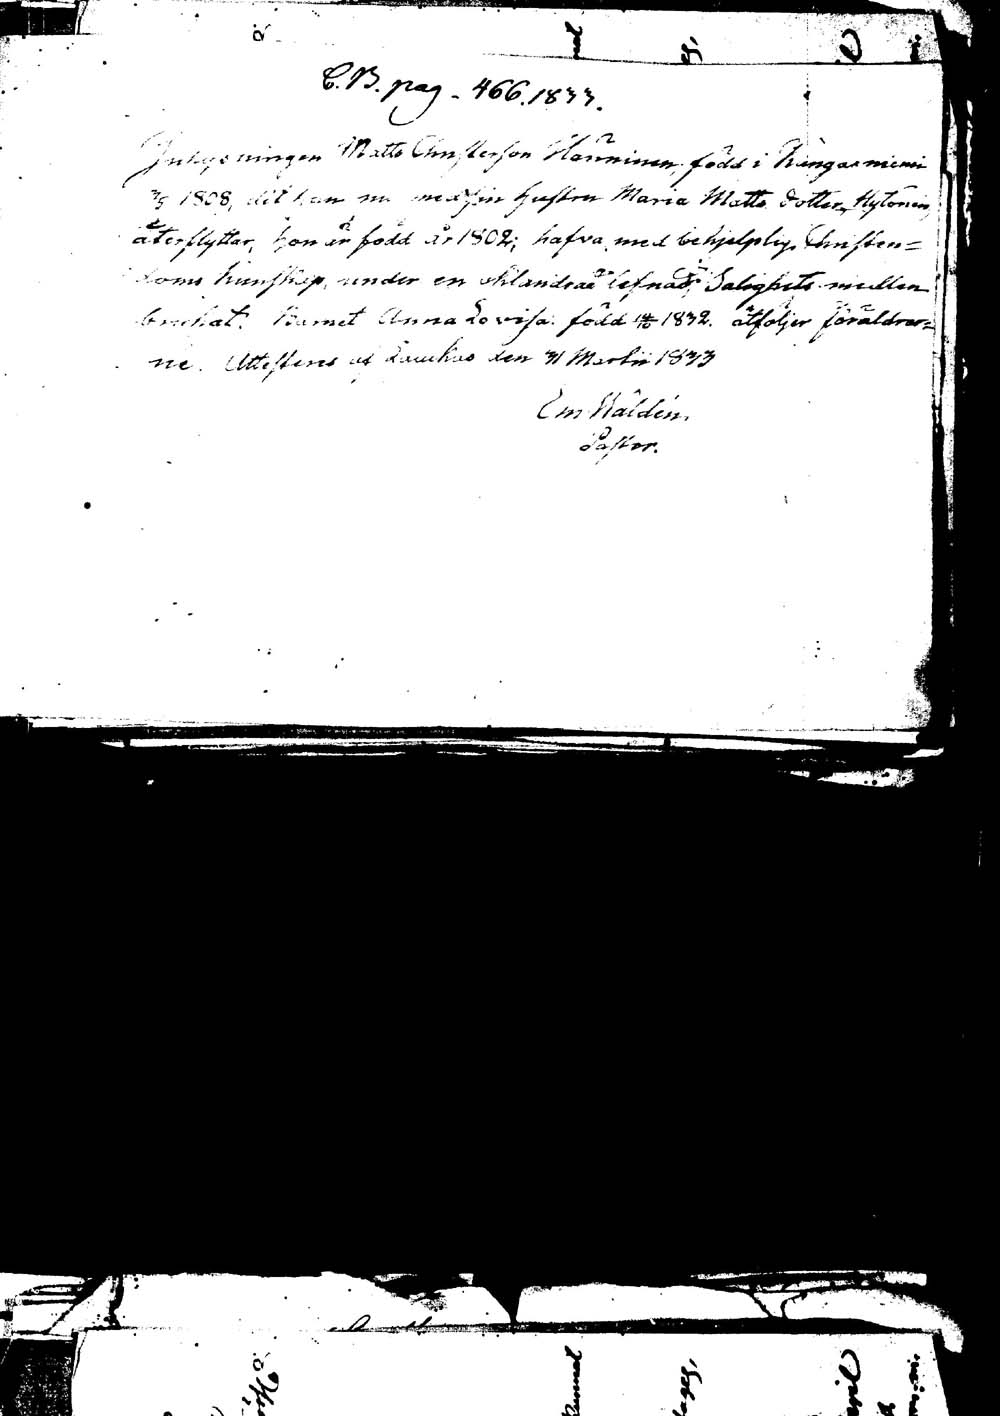 C.B. pag. 466. 1833.
Inhysningen Matts Christerson Hänninen, född i Kangasniemi
1808, dit han nu med sin hustru Maria Matts dotter Hytönen,
återflyttar, hon är född år 1802; hafva med behjelplig Christen=
doms kunskap, under en oklandrad lefnad, Salighets medlen
brukat. Barnet Anna Lovisa född 1832. åtföljer föräldrar=
ne. Attesteras af Laukas den 31 Martii 1833
Em Waldén.
Pastor.